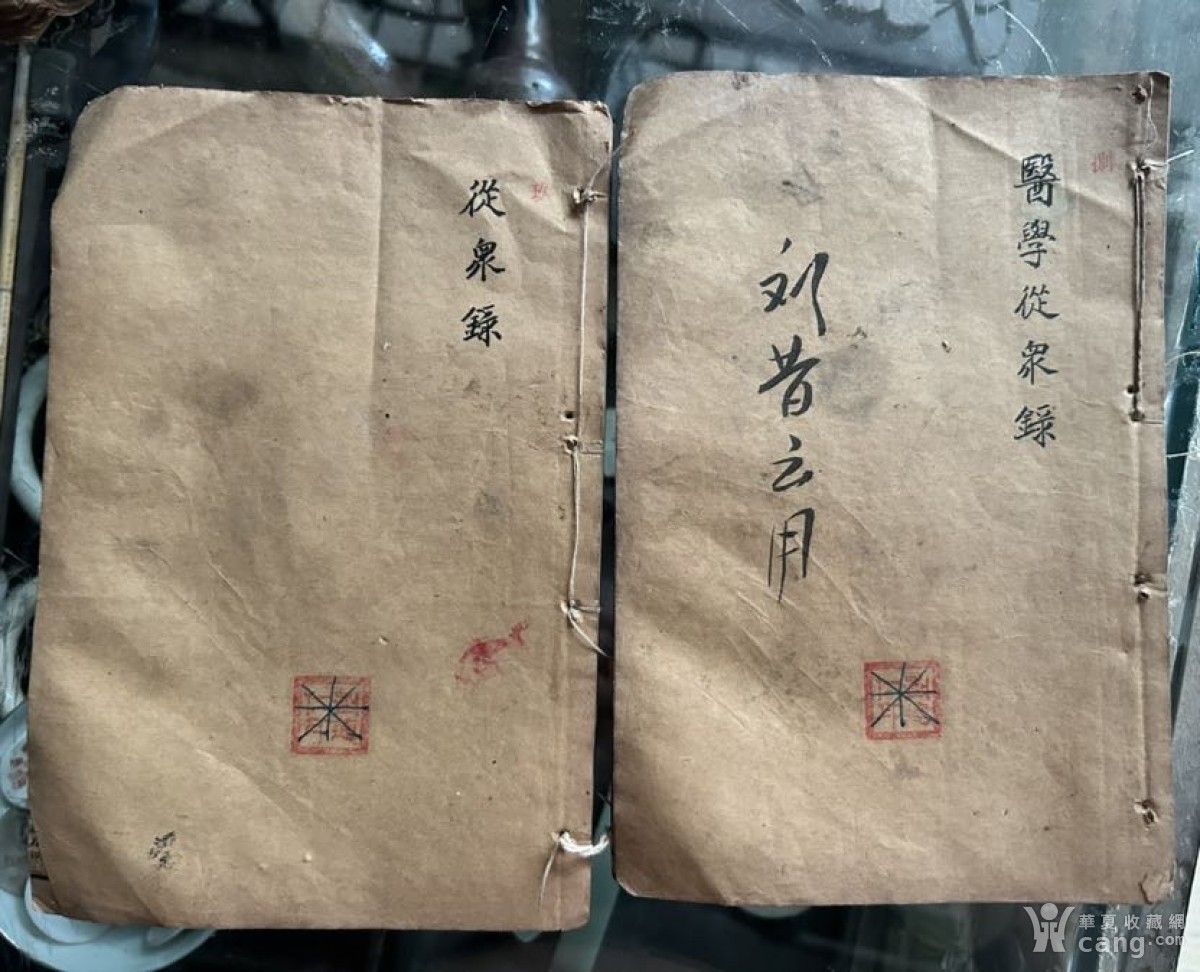 從衆錄
醫學從衆錄
刘昔云用
華夏收藏網
cang.com